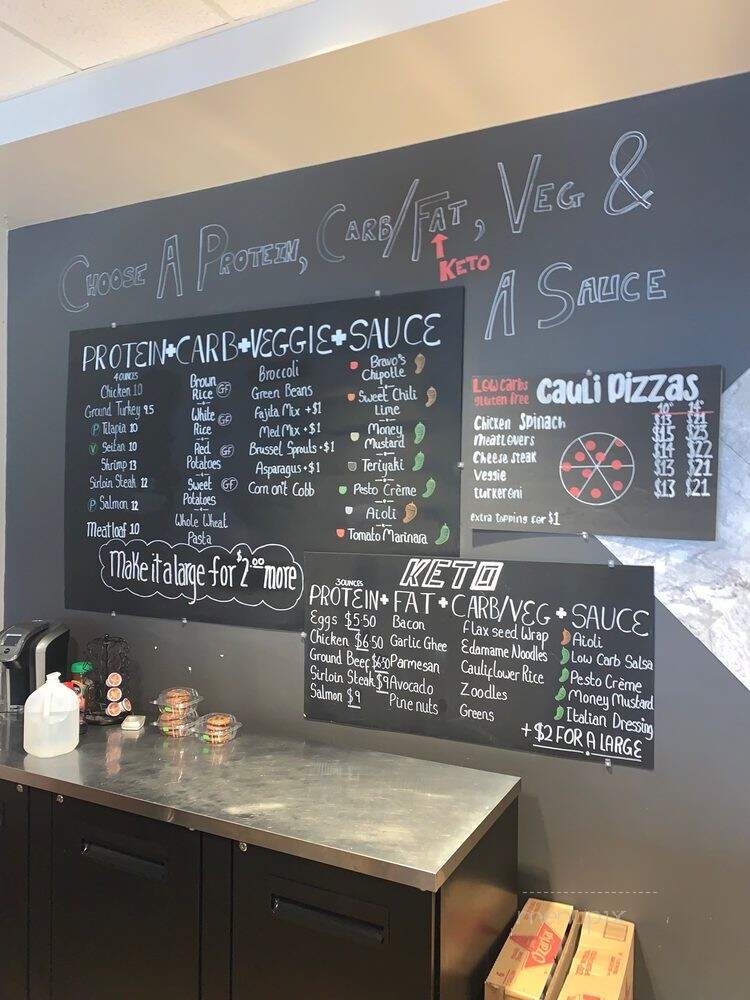 CHOOSE A PROTEIN, CARB/FAT, VEG &
KETO
A SAUCE
PROTEIN+CARB+VEGGIE+SAUCE
4 OUNCES
Chicken 10
Ground Turkey 9.5
P Tilapia 10
V Seitan 10
Shrimp 13
Sirloin Steak 12
P Salmon 12
Meatloaf 10
Brown
Rice GF
White
Rice GF
Red
Potatoes GF
Sweet
Potatoes GF
Whole Wheat
Pasta
Broccoli
Green Beans
Fajita Mix +$1
Med Mix +$1
Brussel Sprouts +$1
Asparagus +$1
Corn on't Cobb
Bravo's
Chipotle
Sweet Chili
Lime
Money
Mustard
Teriyaki
Pesto Crème
Aioli
Tomato Marinara
Make it a large for $2.00 more
Low Carbs
gluten free
Cauli Pizzas
10" 14"
Chicken Spinach
Meatlovers
Cheese steak
Veggie
turkeroni
$15 $23
$14 $22
$13 $21
$13 $21
extra topping for $1
KETO
3 OUNCES
PROTEIN+ FAT + CARB/VEG + SAUCE
Eggs $5.50
Chicken $6.50
Ground Beef $6.50
Sirloin Steak $9
Salmon $9
Bacon
Garlic Ghee
Parmesan
Avocado
Pine nuts
Flax seed Wrap
Edamame Noodles
Cauliflower Rice
Zoodles
Greens
Aioli
Low Carb Salsa
Pesto Crème
Money Mustard
Italian Dressing
+ $2 FOR A LARGE
menupix